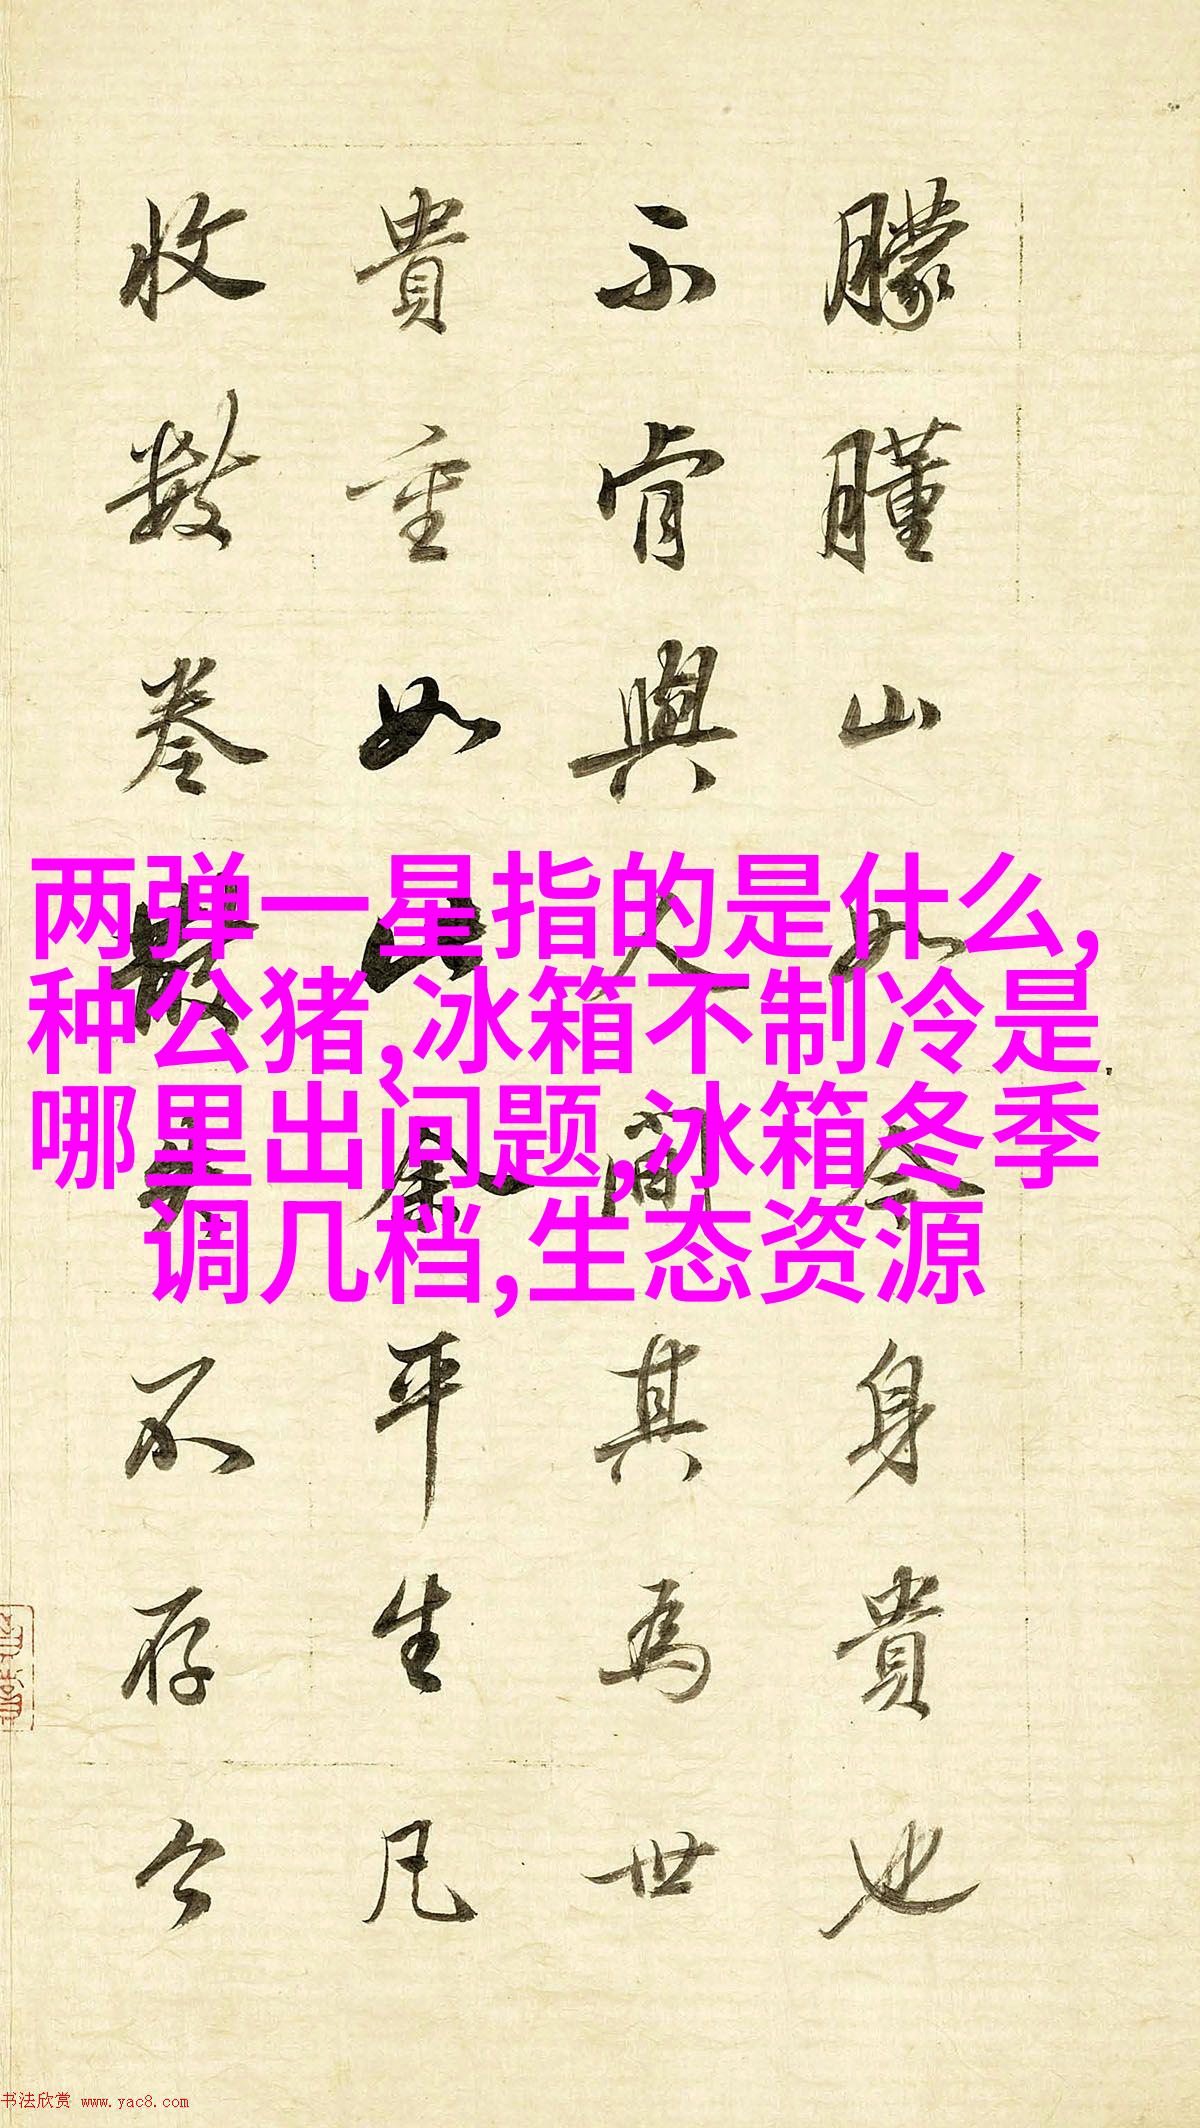 朦山如今身貴也
不肯與人間其為世
貴重如此余平生凡
收數卷散失不存今
两弹一星指的是什么,
种公猪,冰箱不制冷是
哪里出问题,冰箱冬季
调几档,生态资源
书法欣赏 www.yac8.com